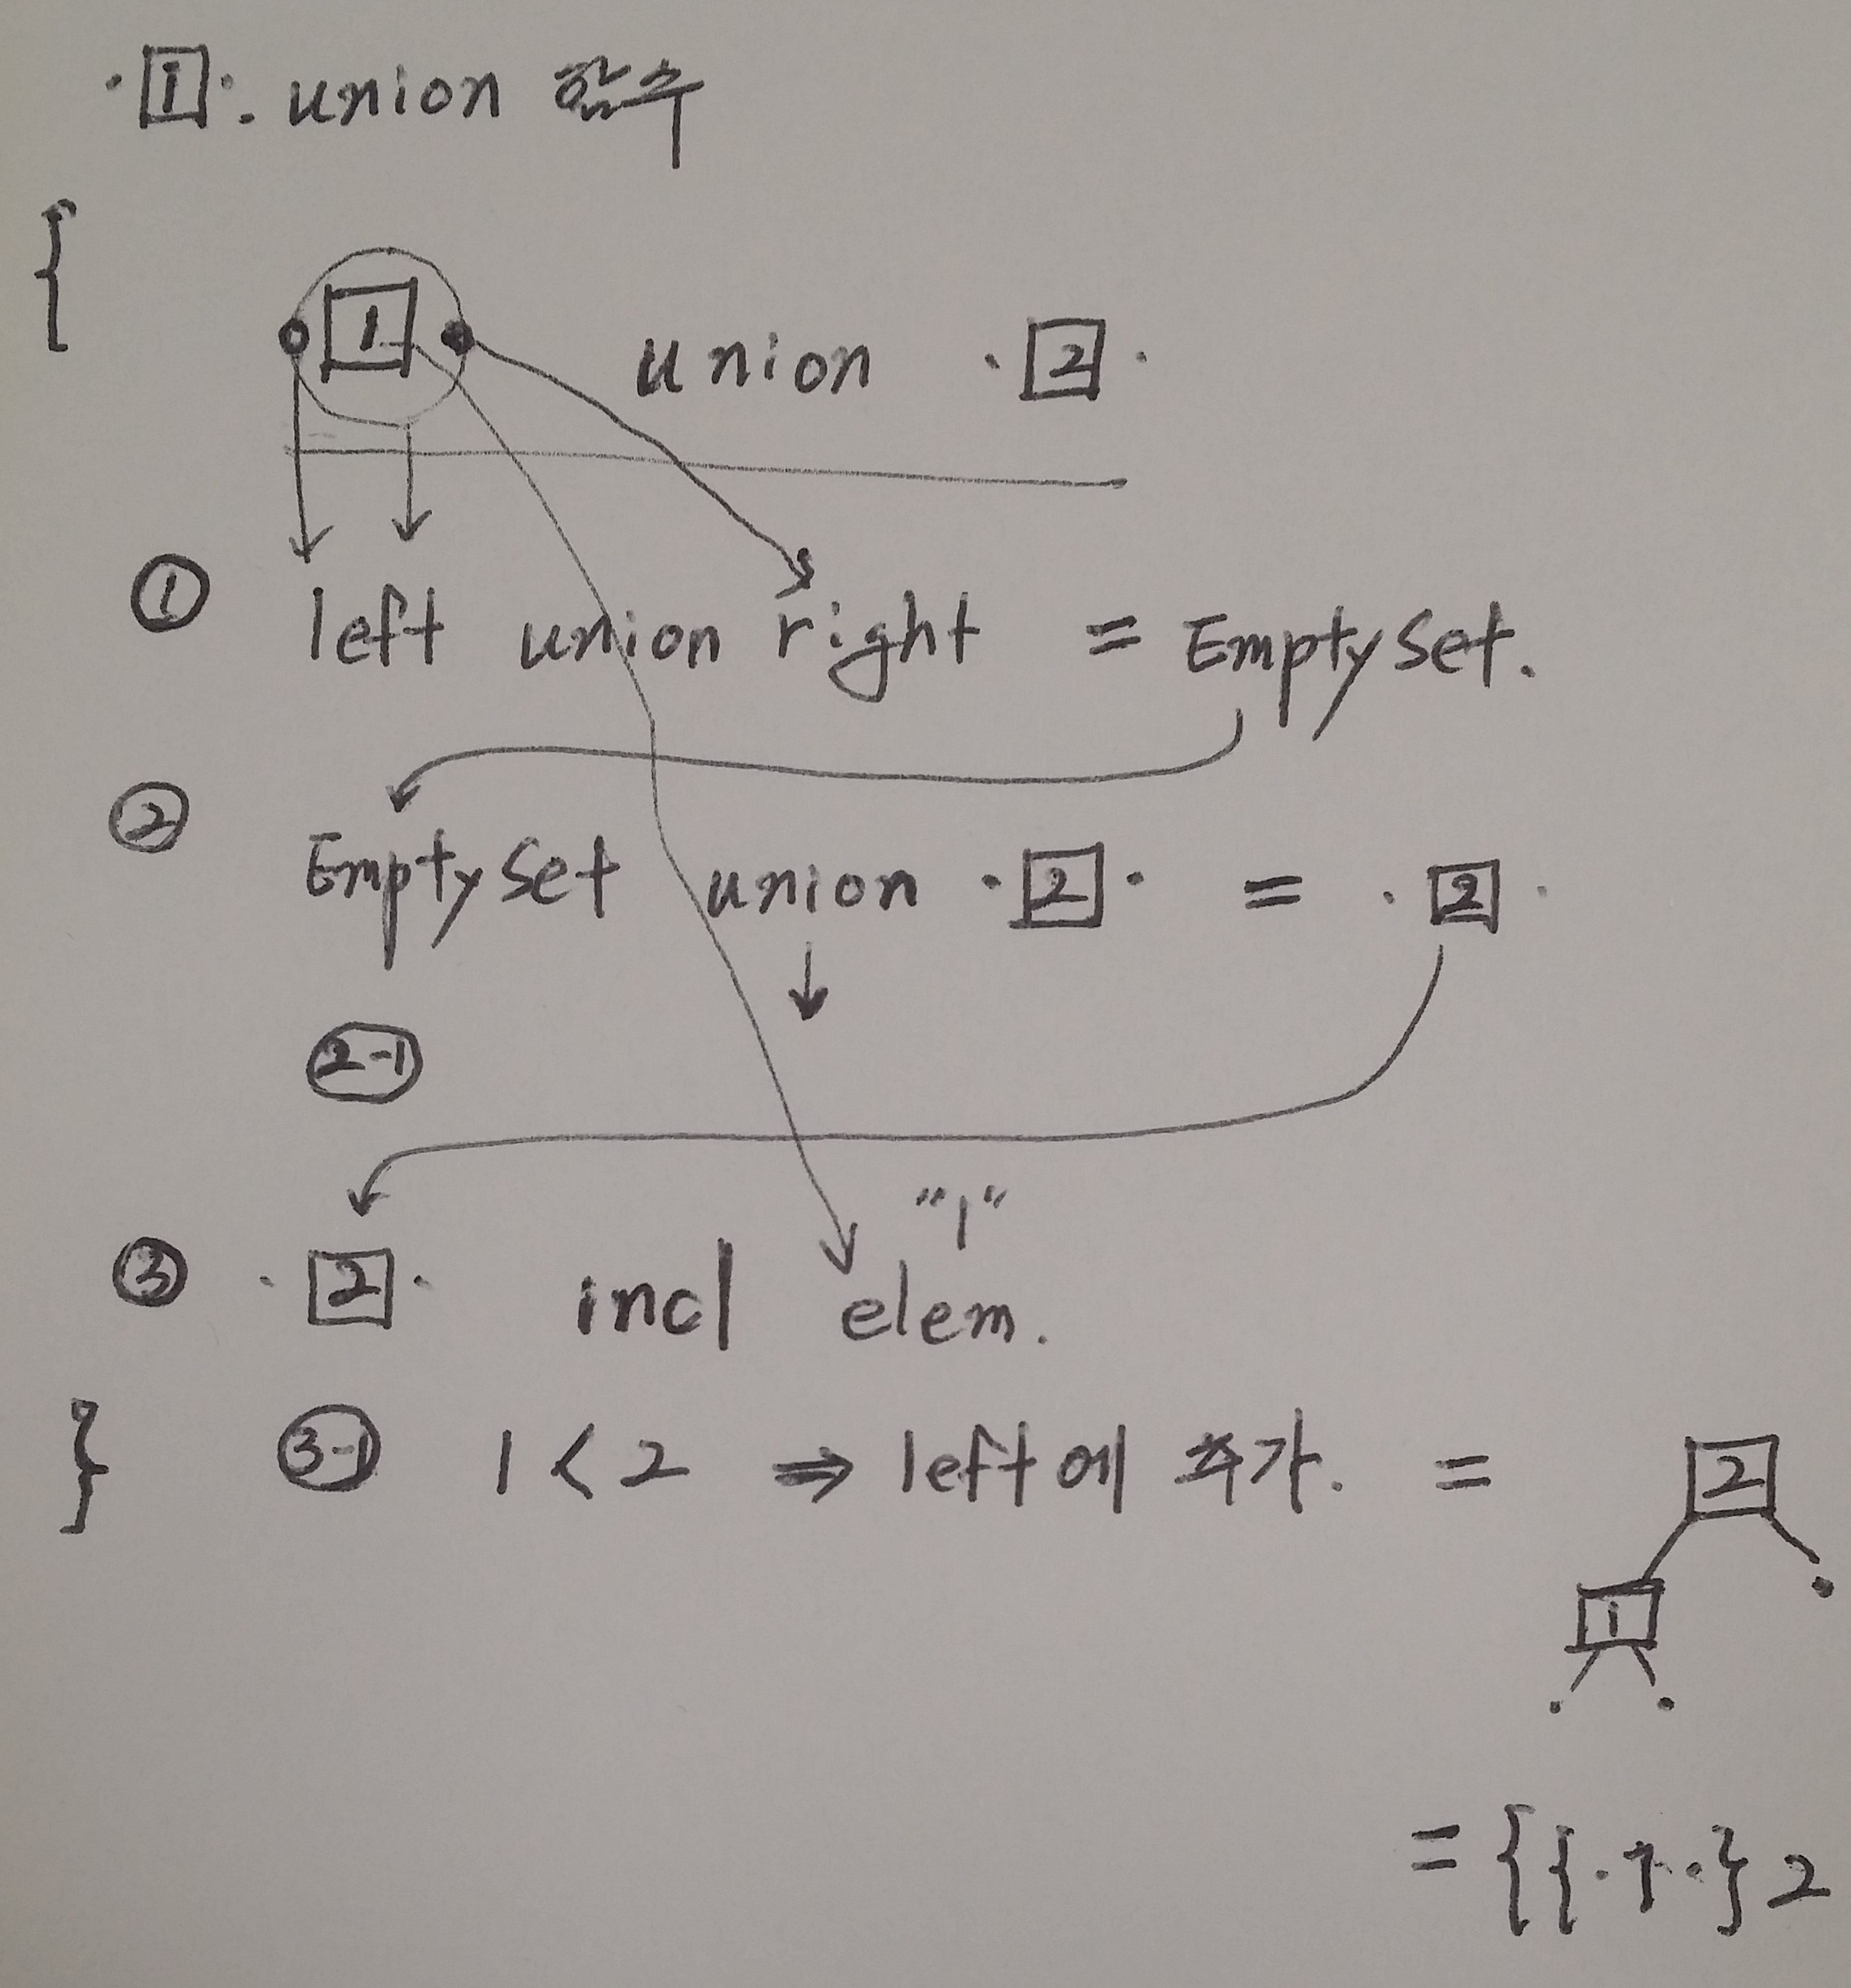 ·1·. union 함수
{
1 union ·2·
① left union right = EmptySet.
② EmptySet union ·2· = ·2·
2-1
"1"
③ ·2· incl elem.
} 3-1 1 < 2 ⇒ left에 추가. = 2
1
= {{·1·}2